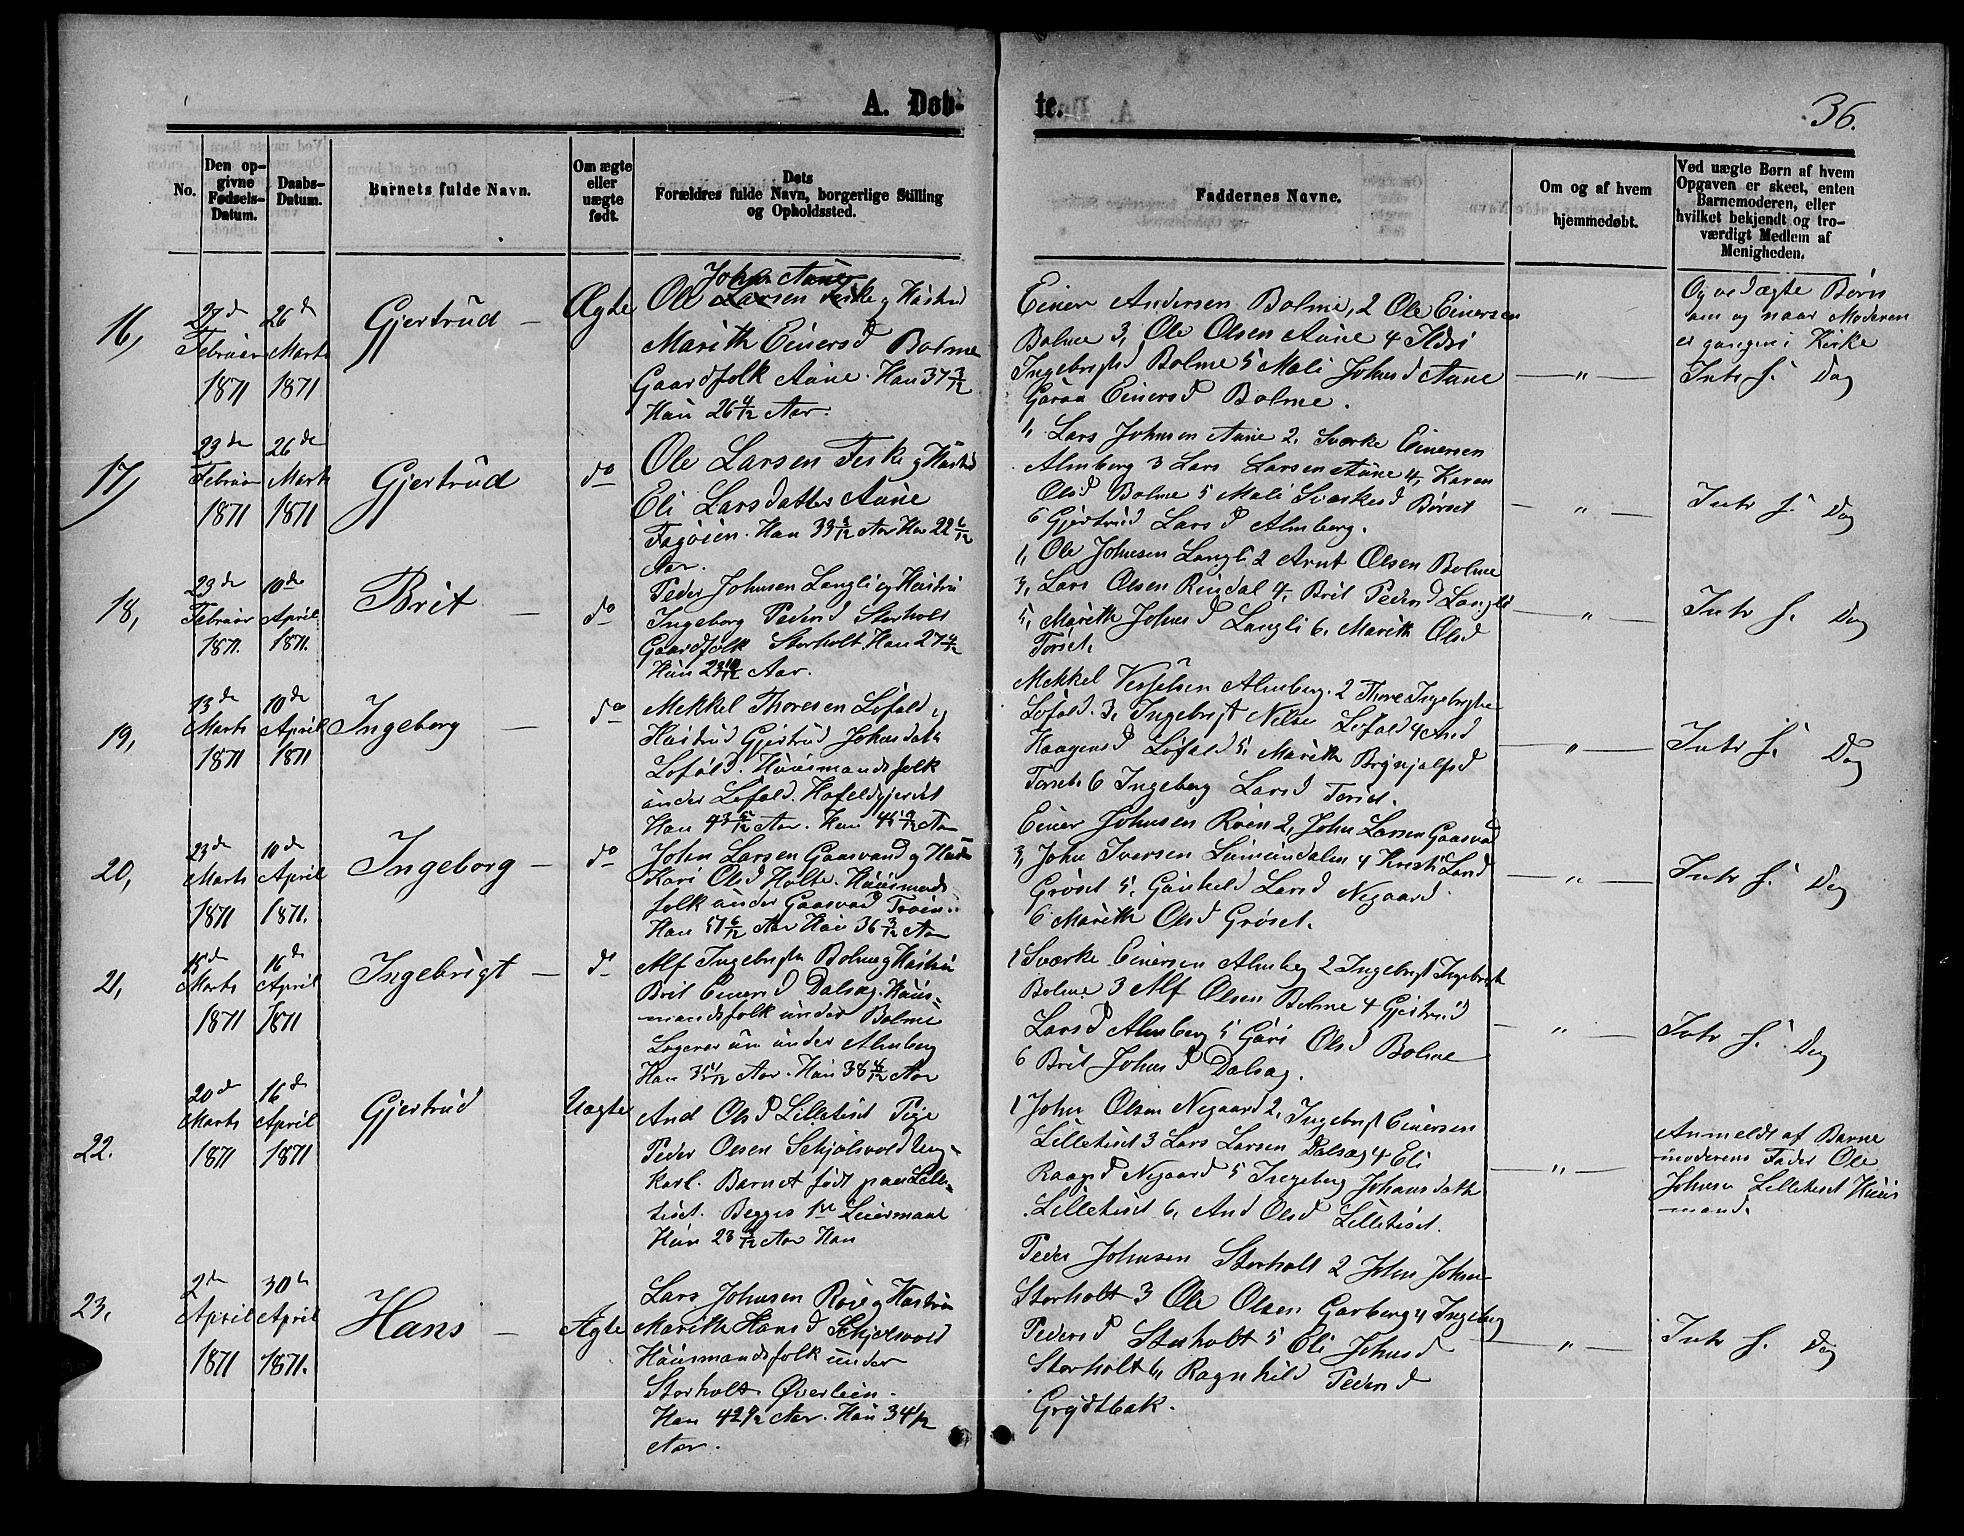 A. Døb-
te.
36.
No.
Den op-
givne
Fødsels-
Datum.
Daabs-
Datum.
Barnets fulde Navn.
Om ægte
eller
uægte
født.
Dets
Forældres fulde Navn, borgerlige Stilling
og Opholdssted.
Faddernes Navne.
Om og af hvem
hjemmedøbt.
Ved uægte Børn af hvem
Opgaven er skeet, enten
Barnemoderen, eller
hvilket bekjendt og tro-
værdigt Medlem af
Menigheden.
16,
27de
Februar
1871
26de
Marts
1871
Gjertrud —
Ægte
Johns Aune
Ole Larsen Feske og Hustru
Marith Einersd Bolme
Gaardfolk Aune. Han 37 3/12
Hun 26 4/12 Aar.
Einer Andersen Bolme, 2 Ole Einersen
Bolme 3, Ole Olsen Aune 4 Ildri
Ingebrigtsd Bolme 5 Mali Johnsd Aune
Einersd Bolme.
— " —
Og ved ægte Børn
om og naar Moderen
er gangen i Kirke
Intr s. Dag
17,
23de
Februar
1871
26de
Marts
1871
Gjertrud
do
Ole Larsen Feske og Hustru
Eli Larsdatter Aune
Fagøien. Han 33 Aar Hun 22 6/12
Aar.
1, Lars Johnsen Aune 2. Sværke Einersen
Almberg 3 Lars Larsen Aune 4, Karen
Olsd Bolme 5 Mali Sværkesd Børset
6 Gjertrud Lars d Almberg.
— " —
Intr s. Dag
18,
23de
Februar
1871.
10de
April
1871.
Brit —
do
Peder Johnsen Langli og Hustru
Ingeborg Pedersd Storholt
Gaardfolk Storholt. Han 27 4/12
Hun 23 10/12 Aar.
1, Ole Johnsen Langli 2 Arnt Olsen Bolme
3, Lars Olsen Rindal 4, Brit Pedersd Langli
5, Marith Johnsd Langli 6, Marith Olsd
Torset,
— " —
Intr s. Dag
19,
13de
Marts
1871
10de
April
1871
Ingeborg —
do
Mekkel Thoresen Løfald og
Hustrud Gjertrud Johnsdatt
Løfald. Huusmandsfolk
under Løfald.
Han 43 5/12 Aar. Hun 45 Aar
Mekkel Almberg. 2 Thore Ingebrigtse
Løfald. 3, Ingebrigt Nilse Løfald 4 And
Haagensd Løfald 5, Marith Brynjulfsd
Torset 6 Ingeborg Larsd Torset.
— " —
Intr s. Dag
20,
23de
Marts
1871
10de
April
1871.
Ingeborg —
do
John Larsen Gaasvand og Hustru
Kari Olsd Holte. Huusmands-
folk under Gaasvand
Han 51 6/12 Aar Hun 36 3/12 Aar
Einer Johnsen Røen 2, John Larsen Gaasvad
3, John Iversen Surendalen 4 Larsd
Grøset 5, Gunhild Larsd Negaard
6 Marith Olsd Grøset.
— " —
Intr s. Dag
21,
15de
Marts
1871
16de
April
1871
Ingebrigt —
do
Alf Ingebrigtse Bolme og Hustru
Brit Einersd Dalsæg. Huus-
mandsfolk under Bolme
under Almberg
Han 35 1/12 Aar. Hun 38 4/12 Aar
1 Sværke Einersen Almberg 2 Ingebrigt Ingebrigts
Bolme 3 Alf Olsen Bolme 4 Gjertrud
Larsd Almberg 5 Guri Olsd Bolme
6 Brit Johns d Dalsæg.
— " —
Intr s. Dag
22.
20de
Marts
1871
16de
April
1871
Gjertrud
Uægte
And Olsd Lilletiset Pige
Peder Olsen Schjølsvold Ung-
karl. Barnet født paa Lille-
tiset. Begges 1ste Leiermaal
Hun 23 Aar Han
1 John Olsen Negaard 2, Ingebrigt Einersen
Lilletiset 3 Lars Larsen Dalsæg 4 Eli
Negaard 5 Ingeborg Johansdatt
Lilletiset 6, And Olsd Lilletiset.
— " —
Anmeldt af Barne
moderens Fader Ole
Johnsen Lilletiset Huus
mand.
23.
2de
April
1871
30te
April
1871.
Hans —
Ægte
Lars Johnsen Røe og Hustru
Marith Hansd Schjølsvold
Huusmandsfolk under
Storholt Øverleien.
Han 42 Aar. Hun 34
Aar.
Peder Johnsen Storholt 2 John Johnse
Storholt 3 Ole Olsen Garberg 4 Ingeborg
Pedersd Storholt 5 Eli Johnsd
Storholt 6, Ragnhild Pedersd
Grydtbak.
— " —
Intr s. Dag